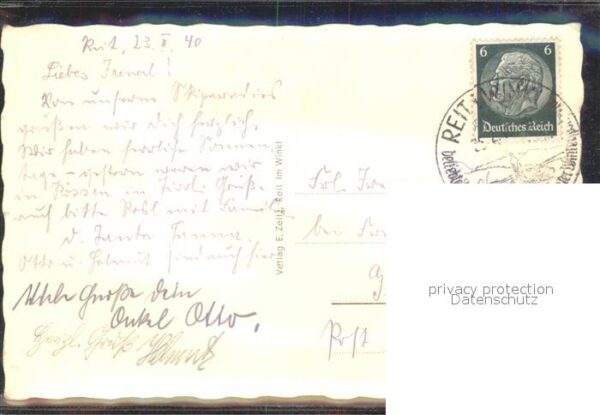 Reit, 23. II. 40
Liebes Irenerl!
Von unserm Skiparadies
grüßen wir Dich herzlichst
Wir haben herrliche Sonnen
tage – gestern waren wir
in Kössen in Tirol. Grüße
auch bitte Rosl mit Familie
d. Tante Hanna.
Otto u. Helmut sind auch hier
Viele Grüße Dein
Onkel Otto.
Herzl. Gruß Helmut
Verlag E. Zeitz, Reit im Winkl
6 6
Deutsches Reich
REIT
Frl. Ire
bei
Post
privacy protection
Datenschutz